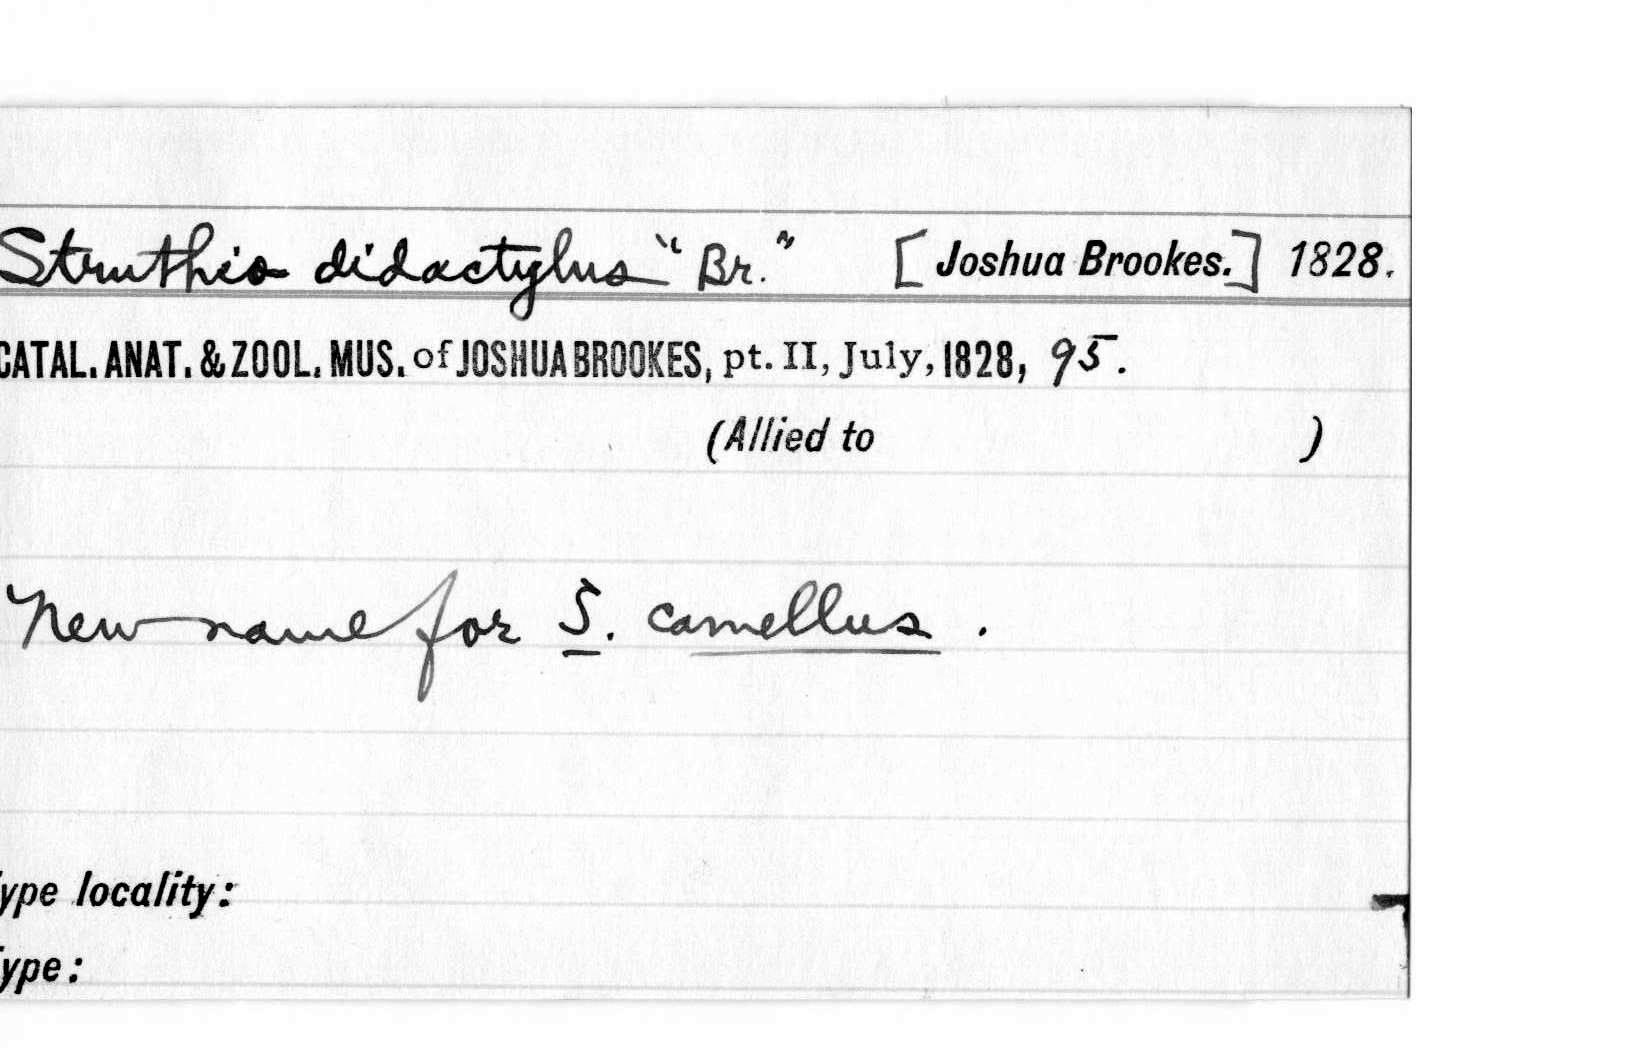 Struthio didactylus "Br." [Joshua Brookes.] 1828.
CATAL. ANAT. & ZOOL. MUS. of JOSHUA BROOKES, pt. II, July, 1828, 95.
(Allied to )
New name for S. camellus.
ype locality:
ype: